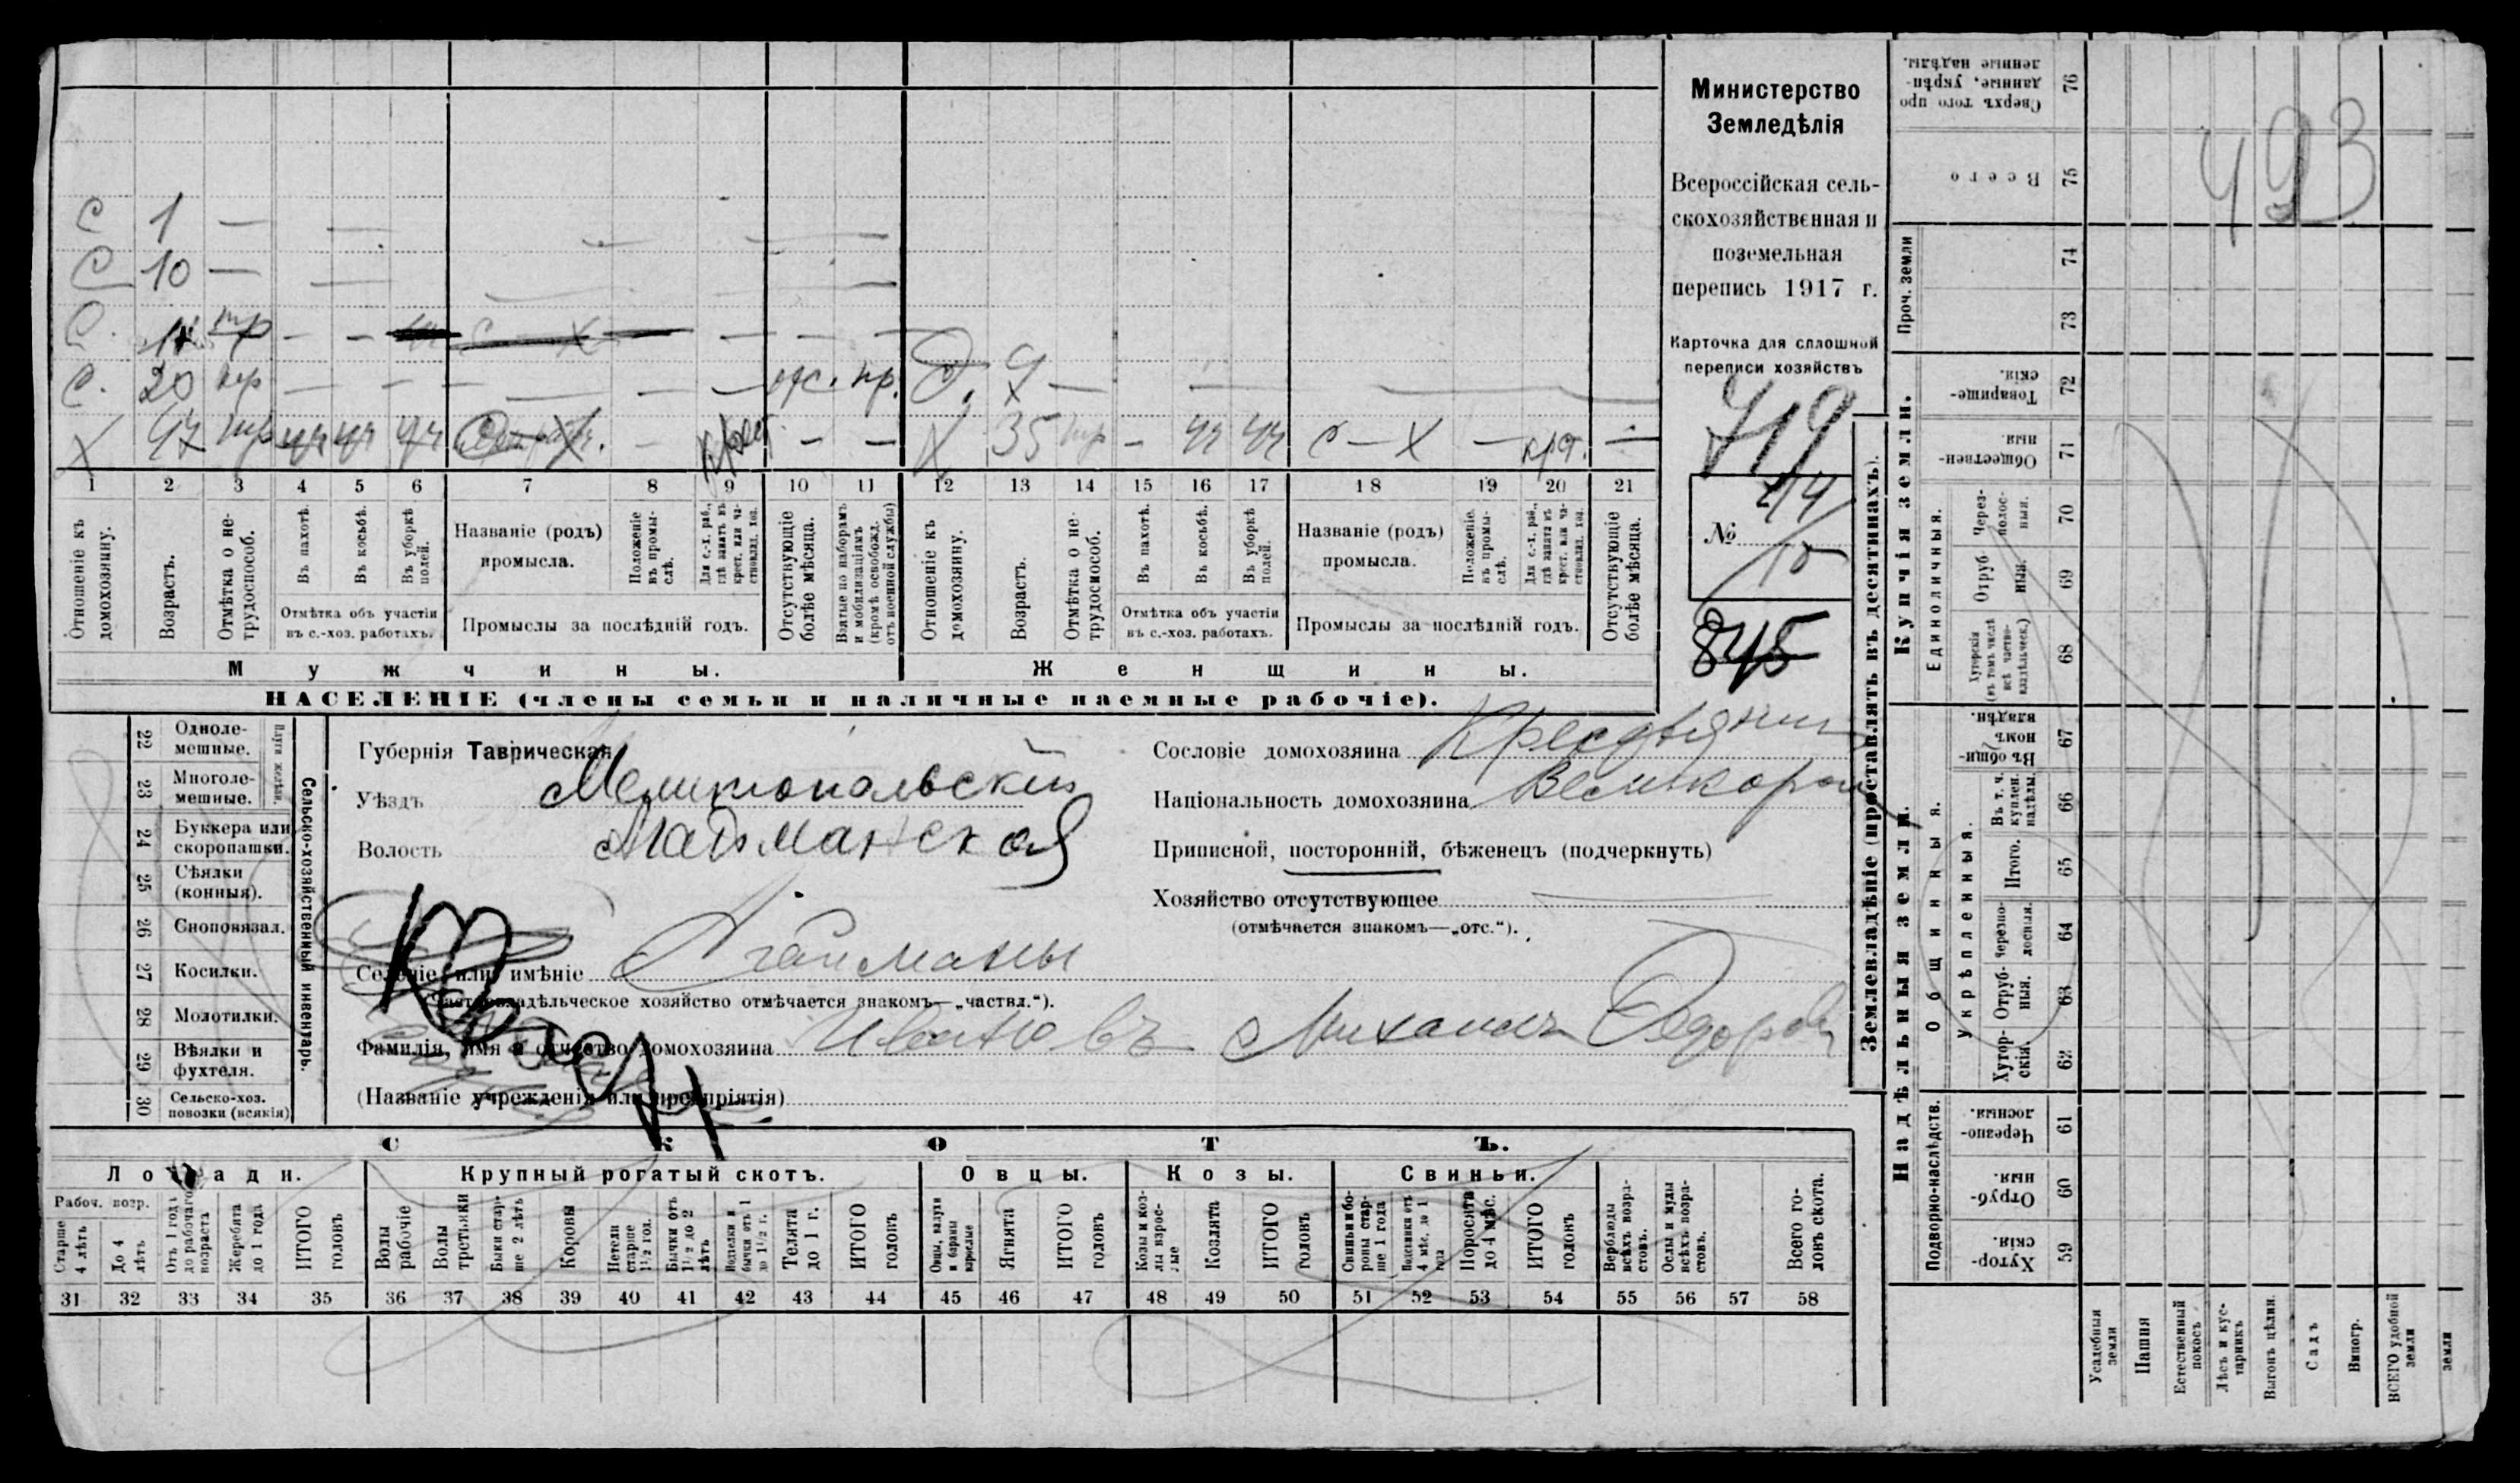 С 1 — — — — —
С 10 — — — — —
С. тр — — С — Х — — — —
С. 20 нр — — — — — — отс. пр. Д. 9 — — —
Х 47 тр уч уч уч — крест. — — Х 35 тр — уч уч С — Х — кр. —
1 2 3 4 5 6 7 8 9 10 11 12 13 14 15 16 17 18 19 20 21
Отношеніе къ домохозяину.
Возрастъ.
Отмѣтка о не-трудоспособ.
Въ пахотѣ.
Въ косьбѣ.
Въ уборкѣ полей.
Отмѣтка объ участіи въ с.-хоз. работахъ.
Названіе (родъ) промысла.
Положеніе въ промы-слѣ.
Для с.-х. раб., гдѣ занятъ въ крест. или ча-стновлад. хоз.
Промыслы за послѣдній годъ.
Отсутствующіе болѣе мѣсяца.
Взятые по наборамъ и мобилизаціямъ (кромѣ освобожд. отъ военной службы)
Отношеніе къ домохозяину.
Возрастъ.
Отмѣтка о не-трудоспособ.
Въ пахотѣ.
Въ косьбѣ.
Въ уборкѣ полей.
Отмѣтка объ участіи въ с.-хоз. работахъ.
Названіе (родъ) промысла.
Положеніе въ промы-слѣ.
Для с.-х. раб., гдѣ занята въ крест. или ча-стновлад. хоз.
Промыслы за послѣдній годъ.
Отсутствующіе болѣе мѣсяца.
Мужчины. Женщины.
НАСЕЛЕНІЕ (члены семьи и наличные наемные рабочіе).
Министерство
Земледѣлія
Всероссійская сель-
скохозяйственная и
поземельная
перепись 1917 г.
Карточка для сплошной
переписи хозяйствъ
719
№
845
22 Одноле-мешные.
23 Многоле-мешные.
Плуги желѣзн.
24 Буккера или скоропашки.
25 Сѣялки (конныя).
26 Сноповязал.
27 Косилки.
28 Молотилки.
29 Вѣялки и фухтеля.
30 Сельско-хоз. повозки (всякія)
Сельско-хозяйственный инвентарь.
Губернія Таврическая
Уѣздъ Мелитопольскій
Волость
Селеніе или имѣніе Агайманы
(Частновладѣльческое хозяйство отмѣчается знакомъ—„частвл.“).
Фамилія, имя и отчество домохозяина Ивановъ Михаилъ Федоров
(Названіе учрежденія или предпріятія)
Сословіе домохозяина Крестьянин
Національность домохозяина Великорос
Приписной, посторонній, бѣженецъ (подчеркнуть)
Хозяйство отсутствующее —
(отмѣчается знакомъ—„отс.“).
СКОТЪ.
Лошади. Крупный рогатый скотъ. Овцы. Козы. Свиньи.
Рабоч. возр.
Старше 4 лѣтъ
До 4 лѣтъ
Отъ 1 года до рабочаго возраста
Жеребята до 1 года
ИТОГО головъ
Волы рабочіе
Волы третьяки
Быки стар-ше 2 лѣтъ
Коровы
Нетели старше 1½ год.
Бычки отъ 1½ до 2 лѣтъ
Подтелки и бычки отъ 1 до 1½ г.
Телята до 1 г.
ИТОГО головъ
Овцы, валухи и бараны взрослые
Ягнята
ИТОГО головъ
Козы и коз-лы взрос-лые
Козлята
ИТОГО головъ
Свиньи и бо-ровы стар-ше 1 года
Подсвинки отъ 4 мѣс. до 1 года
Поросята до 4 мѣс.
ИТОГО головъ
Верблюды всѣхъ возра-стовъ.
Ослы и мулы всѣхъ возра-стовъ.
Всего го-ловъ скота.
31 32 33 34 35 36 37 38 39 40 41 42 43 44 45 46 47 48 49 50 51 52 53 54 55 56 57 58
Землевладѣніе (проставлять въ десятинахъ).
Купчія земли.
Надѣльныя земли.
Сверхъ того про-данные, укрѣп-ленные надѣлы. 76
Всего 75
Проч. земли
74
73
Товарище-скія. 72
Обществен-ныя 71
Единоличныя.
Через-полос-ныя. 70
Отруб-ныя. 69
Хуторскія (въ томъ числѣ всѣ частно-владѣльческ.) 68
Общинныя.
Въ общин-номъ владѣн. 67
Укрѣпленныя.
Въ т. ч. куплен. надѣлы. 66
Итого. 65
Черезпо-лосныя. 64
Отруб-ныя. 63
Хутор-скія. 62
Подворно-наслѣдств.
Черезпо-лосныя. 61
Отруб-ныя. 60
Хутор-скія. 59
Усадебныя земли
Пашня
Естественный покосъ
Лѣсъ и кус-тарникъ
Выгонъ цѣлин.
Садъ
Виногр.
ВСЕГО удобной земли
земли
493